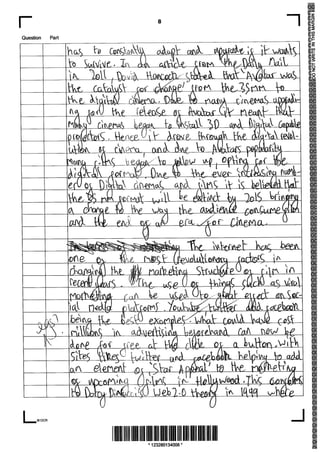 8
Question Part
has to constantly adapt and upgrade if it wants
to survive. In an article from the Daily Mail
in 2011, David Hancock stated that 'Avatar was
the catalyst for change' from the 35mm to
the digital cinema. Due to many cinemas
for the release of Avatar it meant that
Many cinemas began to install 3D and Digital capable
projectors. Hence it drove through the digital
of cinema, and due to Avatars popularity
Many films began to follow up, opting for the
digital format. Due to the ever increasing numb-
ers of Digital cinemas and films it is believed that
the 35 mm format will be extinct by 2015 bringing
a change to the way the audience consume film
and the end of an era for cinema.
The internet has been
one of the most revolutionary factors in
changing the marketing structure of film in
recent years. The use of things such as viral
Marketing can be used to great effect on Soc-
ial media platforms. Youtube, twitter and facebook
being the best examples. What could have cost
millions in advertising beforehand can now be
done for free at the click of a button. With
Sites likes twitter and facebook helping to add
an element of 'Star Appeal' to the marketing
of upcoming films in Hollywood. This
to Darcy Web 2.0 theory in 1999 where
eg?